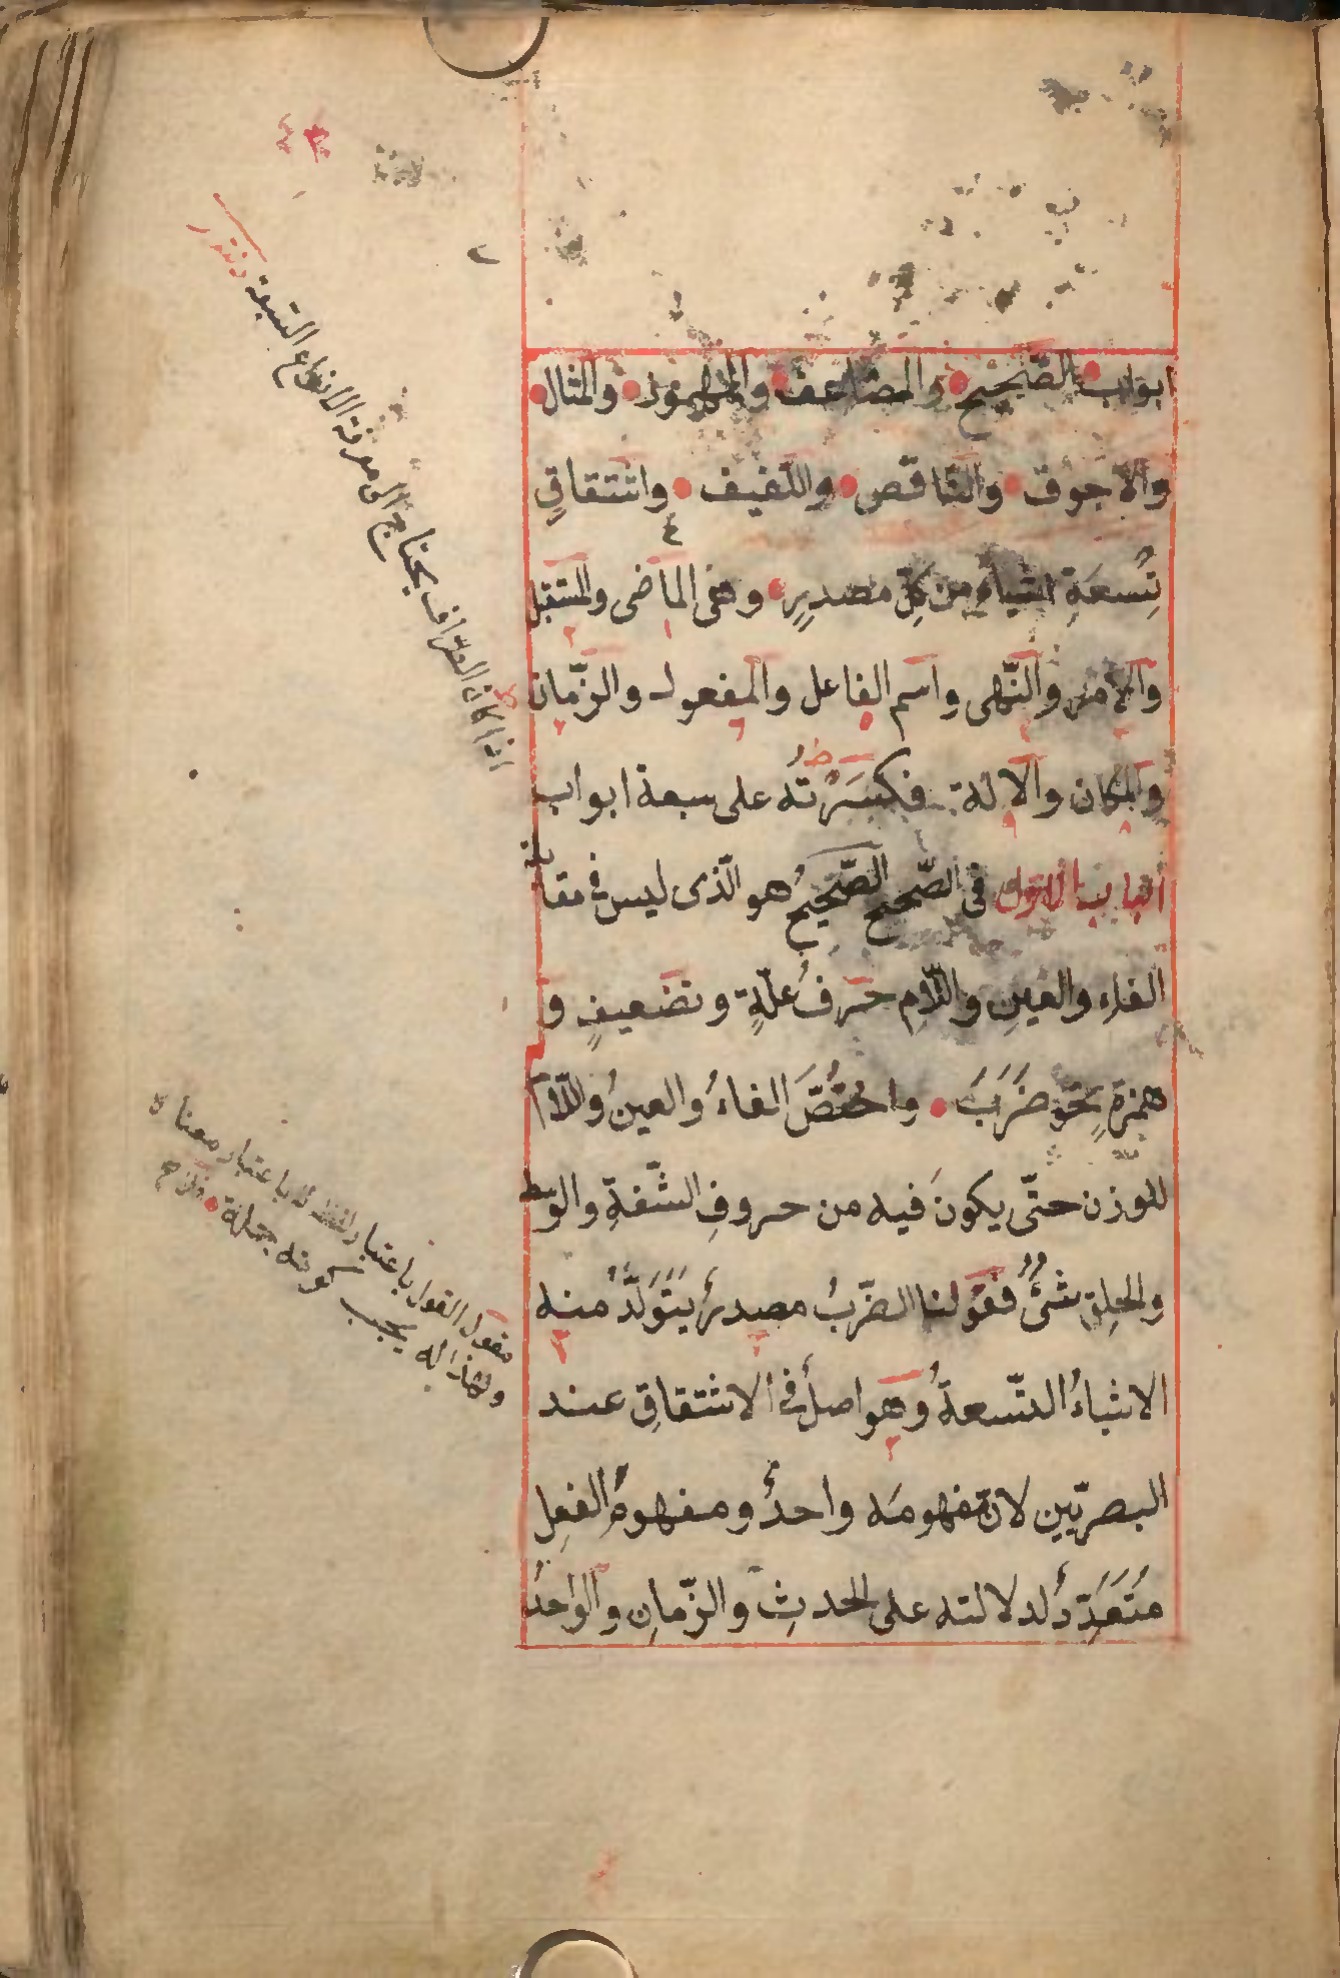 ابواب الصّحيح والمضاعف والمهموز والمثال
والاجوف والنّاقص واللّفيف واشتقاقِ
تِسعَةِ اشياءَ من كلّ مصدرٍ وهى الماضى والمستقبل
والامر والنّهى واسم الفاعل والمفعول والزّمان
والمكان والآلة فكسَرْتُه على سبعة ابواب
الباب الاول فى الصّحيح الصّحيحُ هو الّذى ليس فى مقابلة
الفاءِ والعينِ واللّامِ حرفُ علّةٍ وتضعيفٍ و
همزةٍ نحو ضَرَبَ واختُصَّ الفاءُ والعينُ واللّام
للوزن حتّى يكونَ فيه من حروفِ الشّفةِ والوسط
والحلقِ شئٌ فقولنا الضّربُ مصدرٌ يَتَوَلَّدُ منه
الاشياءُ التّسعةُ وهو اصلٌ فى الاشتقاقِ عند
البصريّين لانّ مفهومَه واحدٌ ومفهومُ الفعلِ
مُتَعَدِّدٌ لدلالته على الحدثِ والزّمانِ والواحدُ
اذا كان الصرّاف يحتاج الى معرفة الانواع السبعة
مقول القول باعتبار لفظه لا باعتبار معناه
ولهذا يجب كونه جملة